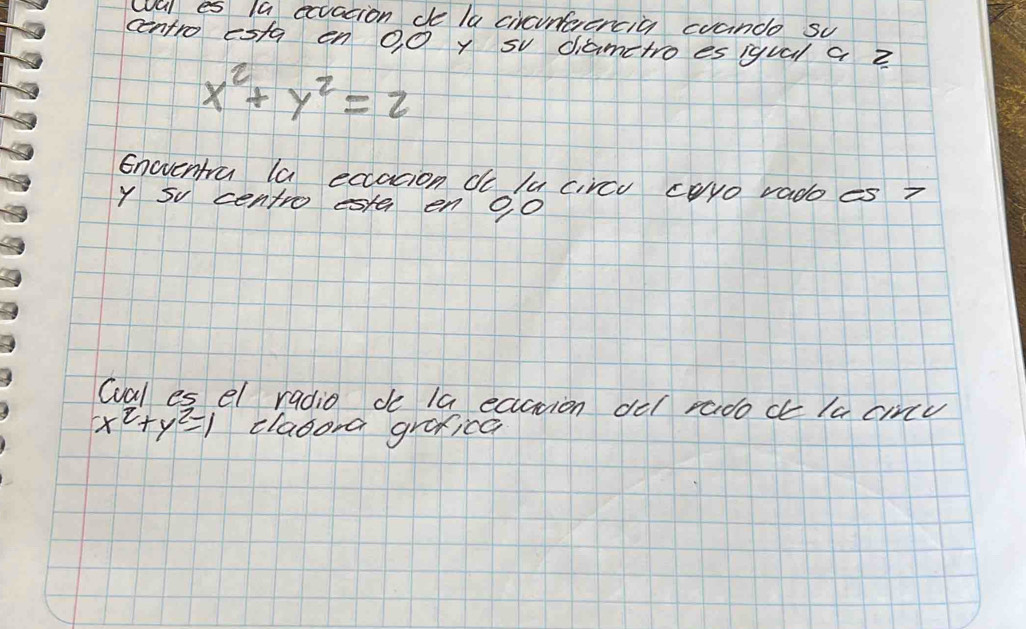 Cual es la ecuacion de la circunferencia cuando su
centro esta en 0,0 y su diametro es igual a 2
x² + y² = 2
Encuentra la ecuacion de la circu cuyo rado es 7
y su centro esta en 0,0
Cual es el radio de la ecuacion del rado de la circu
x²+y²=1 elabora grafica